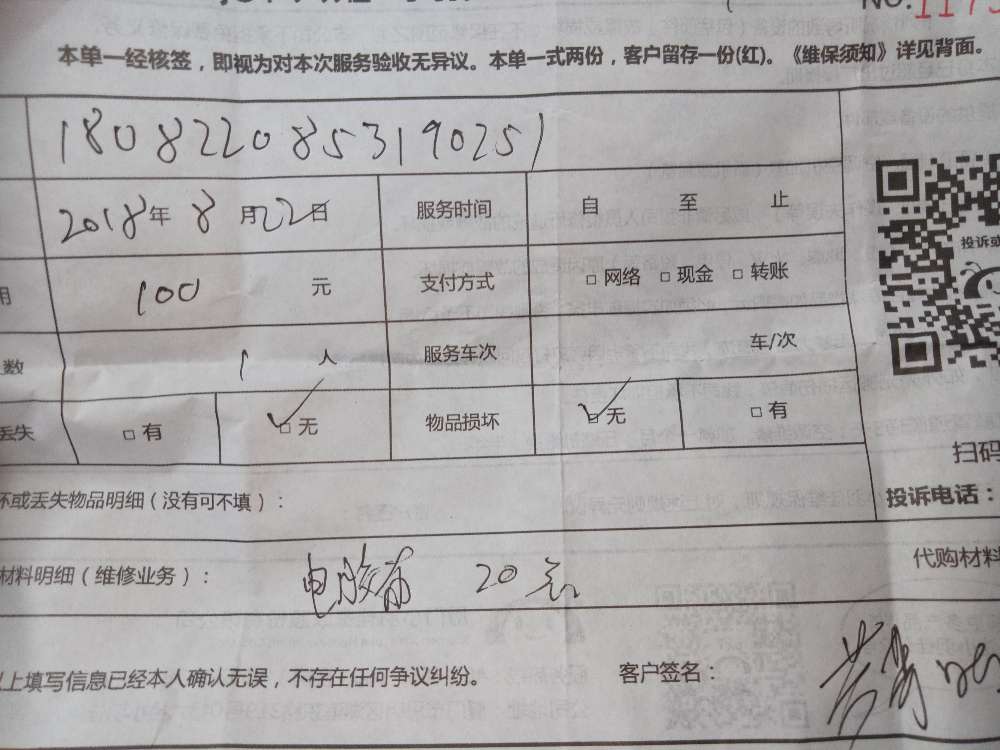 NO.1175
本单一经核签，即视为对本次服务验收无异议。本单一式两份，客户留存一份(红)。《维保须知》详见背面。
1808220853190251
2018年8月22日 服务时间 自 至 止
用 100 元 支付方式 □网络 □现金 □转账
人数 1 人 服务车次 车/次
丢失 □有 ☑无 物品损坏 ☑无 □有
投诉或
扫码
投诉电话：
坏或丢失物品明细（没有可不填）：
代购材料
材料明细（维修业务）： 20元
以上填写信息已经本人确认无误，不存在任何争议纠纷。 客户签名：